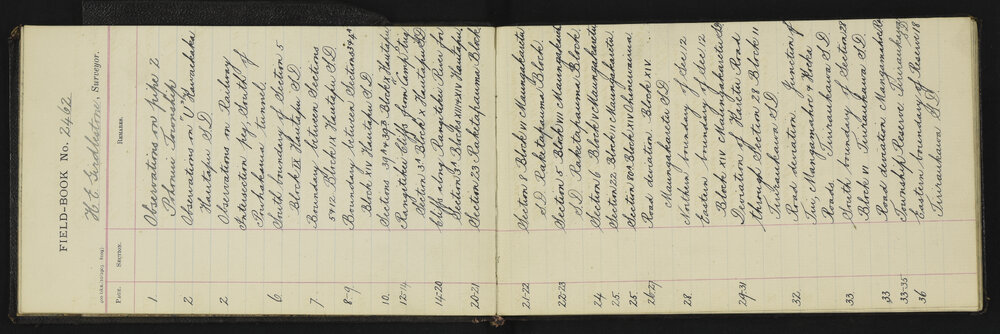 FIELD-BOOK No. 2462
H E Girdlestone, Surveyor.
200 11/8/12/1905 8109)
Page. Section. Remarks.
1. Observations on pipe 2
Pohonui Township
2 Observations on "V" Hauhaka
Hautapu SD
2 Observations on Railway
Intersection peg South of
Powhakaroa tunnel
6. South boundary of Section 5
Block IX Hautapu SD
7. Boundary between Sections
5 & 12 Block IX Hautapu SD
8-9. Boundary between Sections 3 & 4
Block XIV Hautapu SD
10. Sections 39 & 393 Block X Hautapu
12-14 Rangitikei Cliffs from Camp trig
Section 31 Block X Hautapu SD
14-20 Cliffs along Rangitikei River for
Section 31 Blocks XI XIV & XV Hautapu
20-21 Section 23 Raketapauma Block
21-22 Section 8 Block VI Maungakaretu
SD Raketapauma Block
22-23 Section 5 Block VII Maungakaretu
SD Raketapauma Block
24 Section 6 Block V Maungakaretu
25. Section 22 Block II Maungakaretu
25. Section 10A Block IV Ohinewairua
26-27 Road deviation Block XIV
Maungakaretu SD
28. Northern boundary of Sec 12
Eastern boundary of Sec 12
Block XIV Maungakaretu SD
29-31 Deviation of Haretu Road
through Section 28 Block 11
Tiriraukawa SD
32. Road deviation, Junction of
Tui, Mangamahoe & Horks
Roads Tiriraukawa SD
33. South boundary of Section 28
Block VI Tiriraukawa SD
33 Road deviation Mangamahoe Rd
33-35 Township Reserve Tiriraukawa SD
36 Eastern boundary of Section 18
Tiriraukawa SD